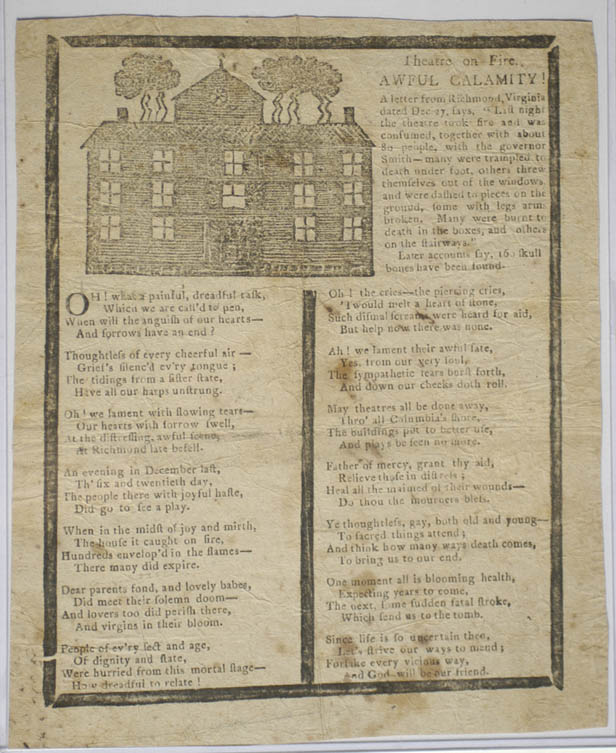 Theatre on Fire.
AWFUL CALAMITY!
A letter from Richmond, Virginia
dated Dec 27, ſays, "Laſt night
the theatre took fire and was
conſumed, together with about
80 people, with the governor
Smith—many were trampled to
death under foot, others threw
themſelves out of the windows
and were daſhed to pieces on the
ground, ſome with legs arms
broken, Many were burnt to
death in the boxes, and others
on the ſtairways."
Later accounts ſay, 160 ſkull
bones have been found.
OH! what a painful, dreadful taſk,
Which we are call'd to pen,
When will the anguiſh of our hearts—
And ſorrows have an end?
Thoughtleſs of every cheerful air—
Grief's ſilenc'd ev'ry tongue;
The tidings from a ſiſter ſtate,
Have all our harps unſtrung.
Oh! we lament with flowing tears—
Our hearts with ſorrow ſwell,
At the diſtreſſing, awful ſcene,
At Richmond late befell.
An evening in December laſt,
Th' ſix and twentieth day,
The people there with joyful haſte,
Did go to ſee a play.
When in the midſt of joy and mirth,
The houſe it caught on fire,
Hundreds envelop'd in the flames—
There many did expire.
Dear parents fond, and lovely babes,
Did meet their ſolemn doom—
And lovers too did periſh there,
And virgins in their bloom.
People of ev'ry ſect and age,
Of dignity and ſtate,
Were hurried from this mortal ſtage—
How dreadful to relate!
Oh! the cries—the piercing cries,
'Twould melt a heart of ſtone,
Such diſmal ſcreams were heard for aid,
But help now there was none.
Ah! we lament their awful fate,
Yes, from our very ſoul,
The ſympathetic tears burſt forth,
And down our cheeks doth roll.
May theatres all be done away,
Thro' all Columbia's ſhore,
The buildings put to better uſe,
And plays be ſeen no more.
Father of mercy, grant thy aid,
Relieve thoſe in diſtreſs;
Heal all the maimed of their wounds—
Do thou the mourners bleſs.
Ye thoughtleſs, gay, both old and young—
To ſacred things attend;
And think how many ways death comes,
To bring us to our end.
One moment all is blooming health,
Expecting years to come,
The next, ſome ſudden fatal ſtroke,
Which ſend us to the tomb.
Since life is ſo uncertain then,
Let's ſtrive our ways to mend;
Forſake every vicious way,
And God will be our friend.